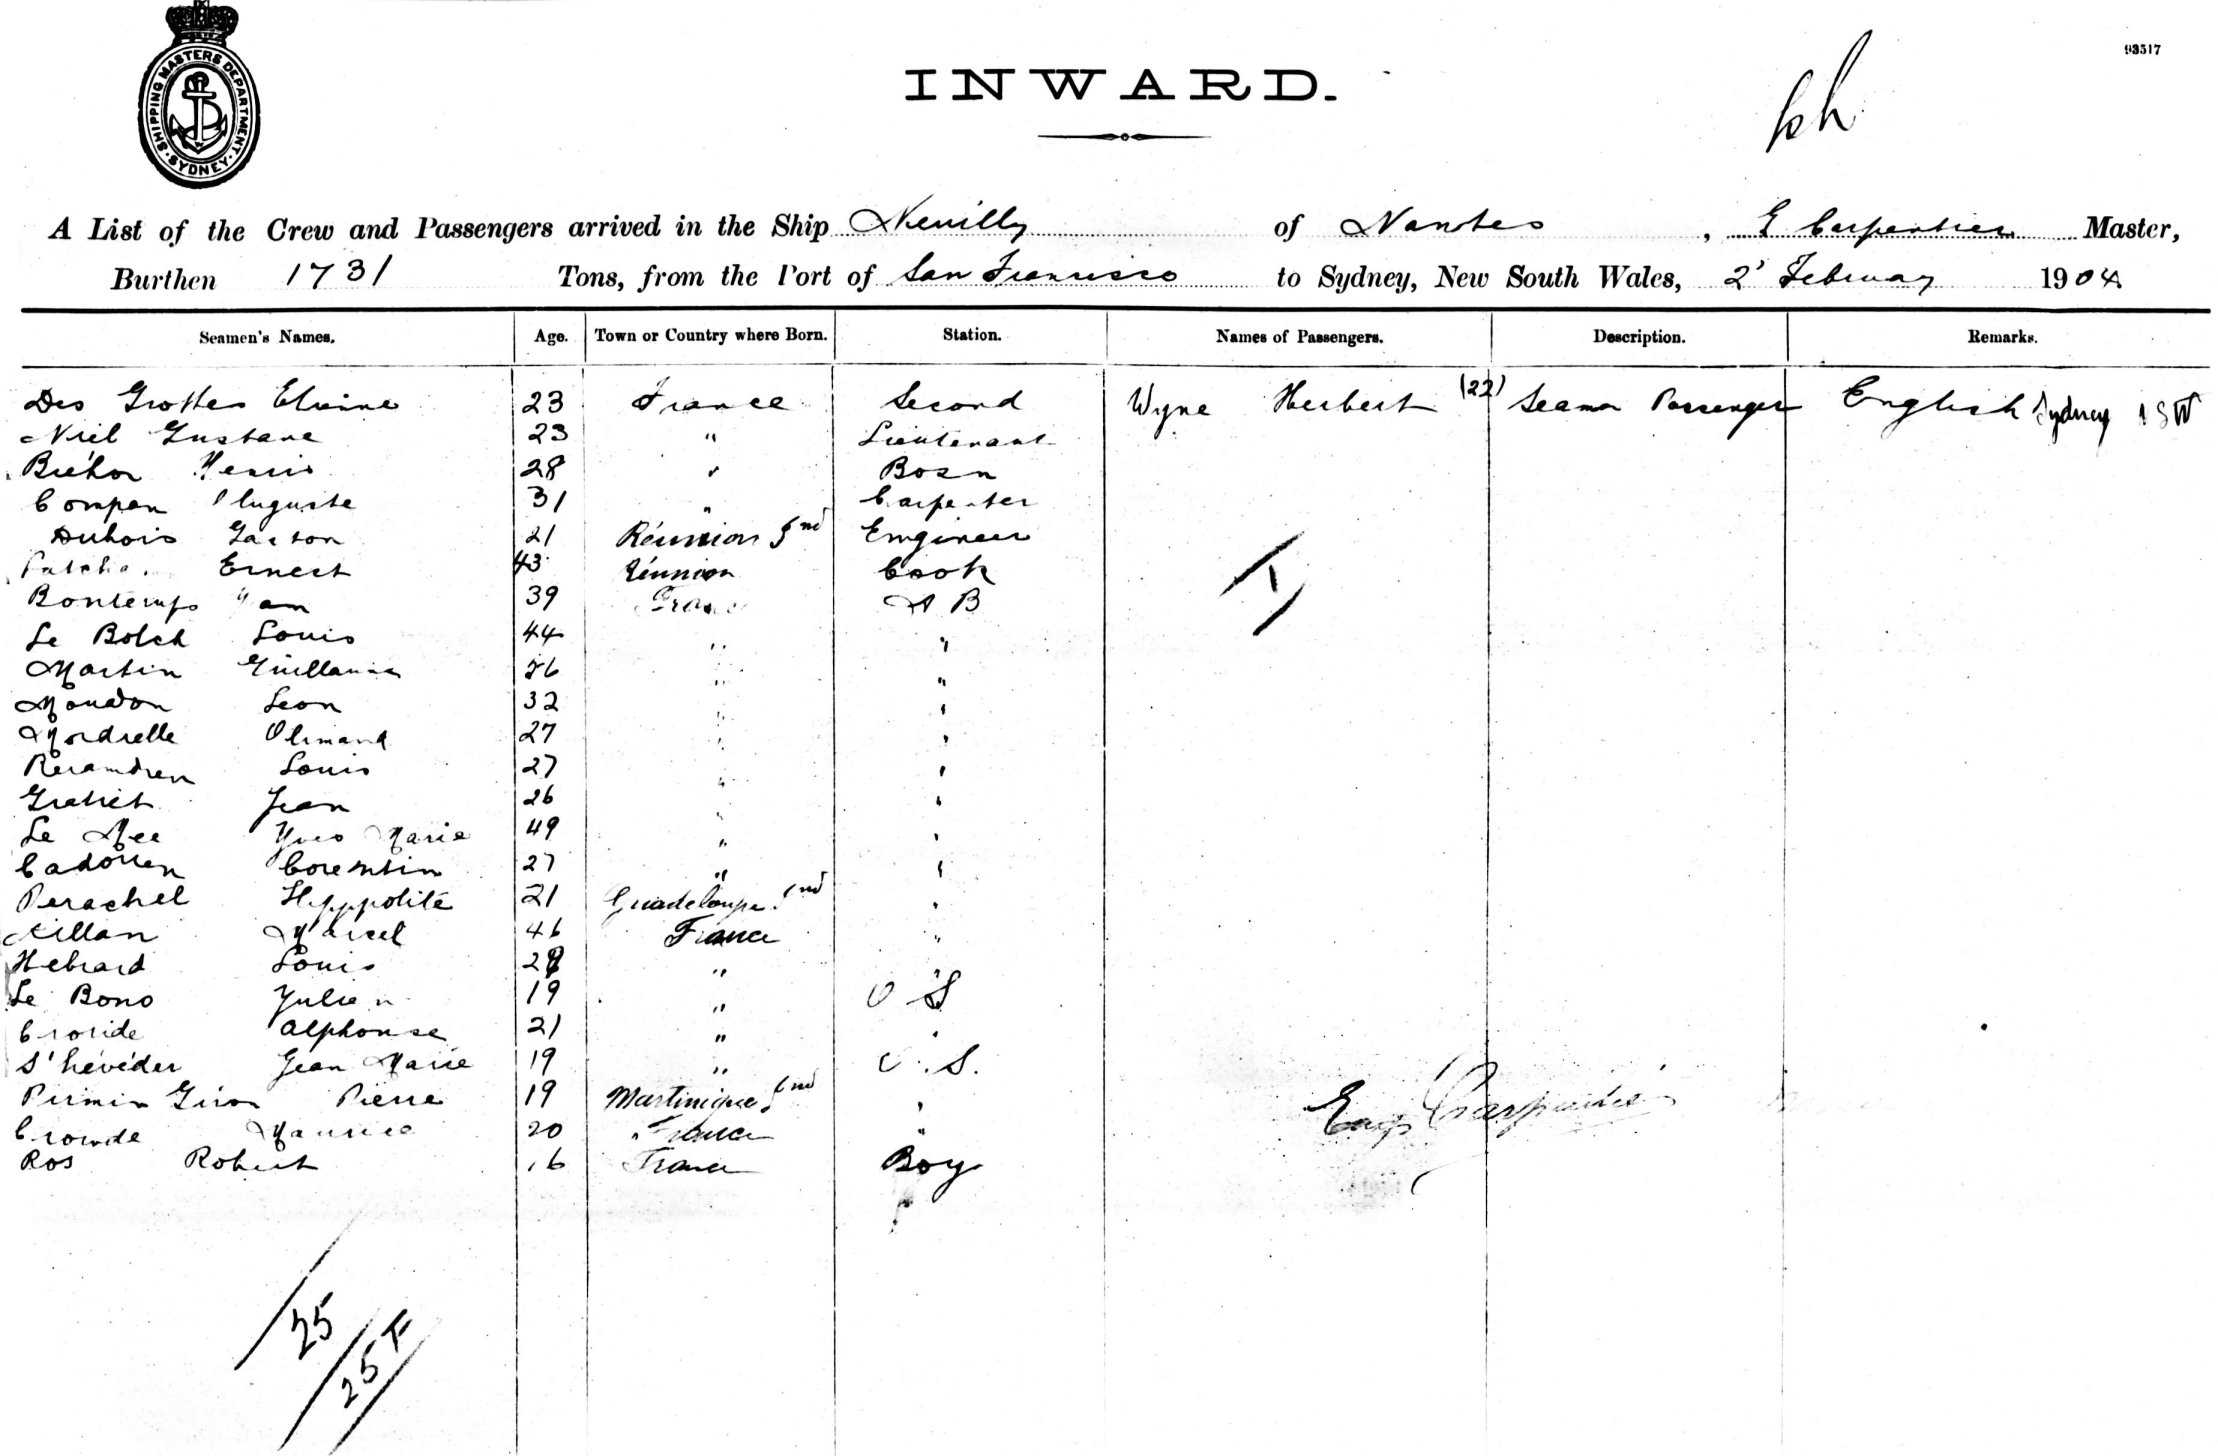 SHIPPING MASTERS DEPARTMENT
SYDNEY
93517
INWARD.
A List of the Crew and Passengers arrived in the Ship Neuilly of Nantes, E Carpentier Master,
Burthen 1731 Tons, from the Port of San Francisco to Sydney, New South Wales, 2' February 1904
Seamen's Names. Age. Town or Country where Born. Station. Names of Passengers. Description. Remarks.
Des Grottes Etienne 23 France Second Wyne Herbert (22) Seaman Passenger English Sydney NSW
Niel Gustave 23 " Lieutenant
Bréhon Henri 28 " Bosn
Compan Auguste 31 " Carpenter
Dubois Gaston 21 Réunion Ind Engineer
Ernest 43 Réunion Cook
Bontemps Jan 39 France A B
Le Bolch Louis 44 " "
Martin Guillaume 26 " "
Moudon Leon 32 " "
Mordrelle 27 " "
Louis 27 " "
Gratiet Jean 26 " "
Le Mee Yves Marie 49 " "
Cadoren Corentin 27 " "
Perachel Hyppolité 21 Guadeloupe Ind "
Killan Marcel 46 France "
Hebrard Louis 28 " "
Le Bono Julien 19 " O S
Croride Alphonse 21 " "
L'hévéder Jean Marie 19 " O.S.
Pirmin Giron Pierre 19 Martinique Ind "
Crowde Maurice 20 France "
Ros Robert 16 France Boy
Eug Carpentier
25
25 F